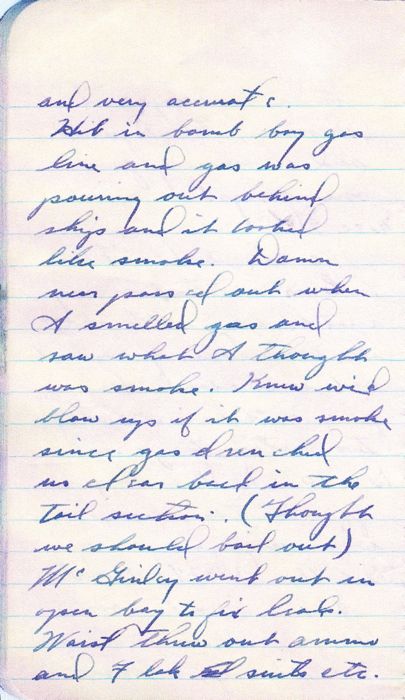 and very accurate.
Hit in bomb bay gas
line and gas was
pouring out behind
ship and it looked
like smoke. Damn
near passed out when
I smelled gas and
saw what I thought
was smoke. Knew we'd
blow up if it was smoke
since gas drenched
us clear back in the
tail section. (Thought
we should bail out)
McGinley went out in
open bay to fix leak.
Waist threw out ammo
and Flak suits etc.